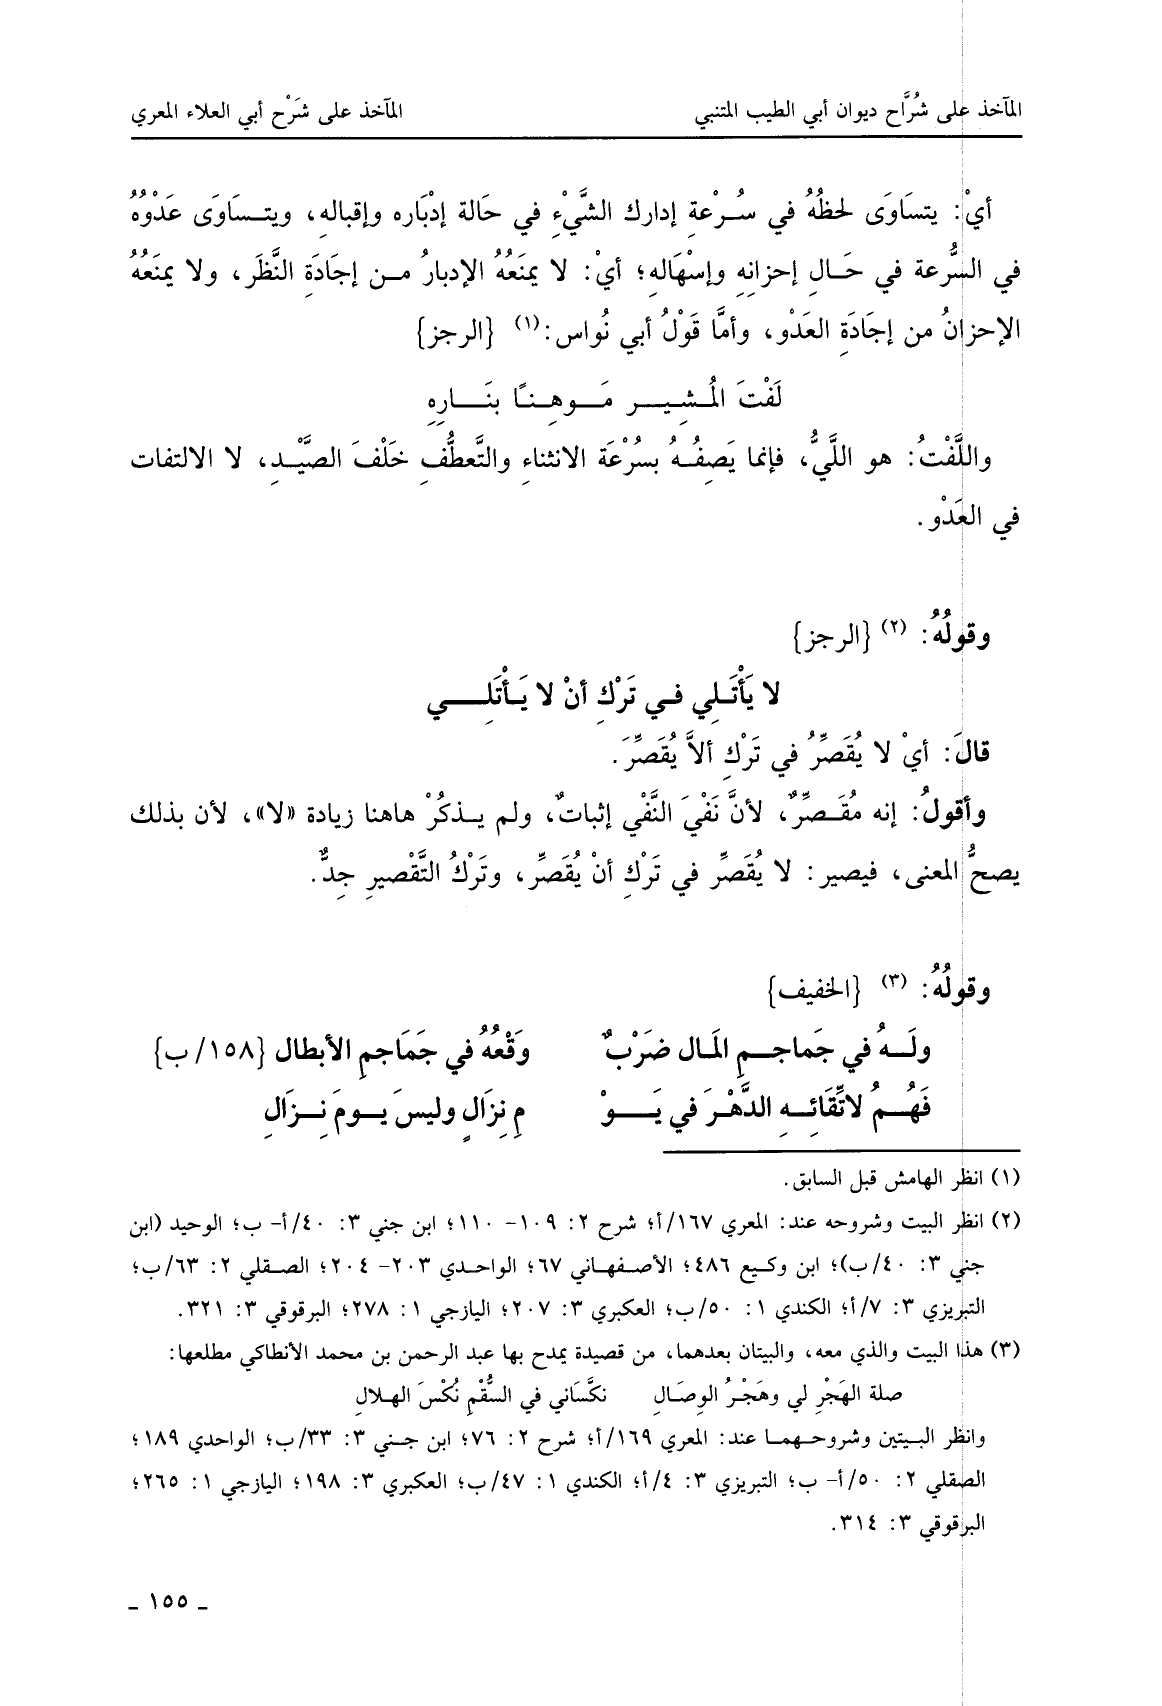 المآخذ على شُرَّاح ديوان أبي الطيب المتنبي المآخذ على شَرْح أبي العلاء المعري
أيْ: يتسَاوَى لحظُهُ في سُرْعةِ إدارك الشَّيْءِ في حَالة إدْبَاره وإقبالهِ، ويتساوَى عَدْوُهُ
في السُّرعة في حَالِ إحزانِهِ وإسْهَالهِ؛ أيْ: لا يمنَعُهُ الإدبارُ من إجَادَةِ النَّظَر، ولا يمنَعُهُ
الإحزانُ من إجَادَةِ العَدْو، وأمَّا قَوْلُ أبي نُواس:(١) {الرجز}
لَفْتَ المُشِيرِ مَوهِنًا بنَارِهِ
واللَّفْتُ: هو اللَيُّ، فإنما يَصِفُهُ بسُرْعَة الانثناءِ والتَّعطُّفِ خَلْفَ الصَّيْدِ، لا الالتفات
في العَدْو.
وقولُهُ: (٢) {الرجز}
لا يَأْتَلِي في تَرْكِ أنْ لا يَأْتَلِي
قالَ: أيْ لا يُقَصِّرُ في تَرْكِ ألاَّ يُقَصِّرَ.
وأقولُ: إنه مُقَصِّرٌ، لأنَّ نَفْيَ النَّفْي إثباتٌ، ولم يذكُرْ هاهنا زيادة «لا»، لأن بذلك
يصحُّ المعنى، فيصير: لا يُقَصِّر في تَرْكِ أنْ يُقَصِّر، وتَرْكُ التَّقْصيرِ جِدٌّ.
وقولُهُ: (٣) {الخفيف}
ولَهُ في جَماجِمِ المَال ضَرْبٌ وَقْعُهُ في جَمَاجمِ الأبطال {١٥٨/ب}
فَهُمُ لاتِّقَائِهِ الدَّهْرَ في يَوْ مِ نِزَالٍ وليسَ يومَ نِزَالِ
(١) انظر الهامش قبل السابق.
(٢) انظر البيت وشروحه عند: المعري ١٦٧/أ؛ شرح ٢: ١٠٩- ١١٠؛ ابن جني ٣: ٤٠/أ- ب؛ الوحيد (ابن
جني ٣: ٤٠/ب)؛ ابن وكيع ٤٨٦؛ الأصفهاني ٦٧؛ الواحدي ٢٠٣- ٢٠٤؛ الصقلي ٢: ٦٣/ب؛
التبريزي ٣: ٧/أ؛ الكندي ١: ٥٠/ب؛ العكبري ٣: ٢٠٧؛ اليازجي ١: ٢٧٨؛ البرقوقي ٣: ٣٢١.
(٣) هذا البيت والذي معه، والبيتان بعدهما، من قصيدة يمدح بها عبد الرحمن بن محمد الأنطاكي مطلعها:
صلة الهَجْرِ لي وهَجْرُ الوِصَالِ نكَّسَاني في السُّقْمِ نُكْسَ الهلالِ
وانظر البيتين وشروحهما عند: المعري ١٦٩/أ؛ شرح ٢: ٧٦؛ ابن جني ٣: ٣٣/ب؛ الواحدي ١٨٩؛
الصقلي ٢: ٥٠/أ- ب؛ التبريزي ٣: ٤/أ؛ الكندي ١: ٤٧/ب؛ العكبري ٣: ١٩٨؛ اليازجي ١: ٢٦٥؛
البرقوقي ٣: ٣١٤.
ـ ١٥٥ ـ